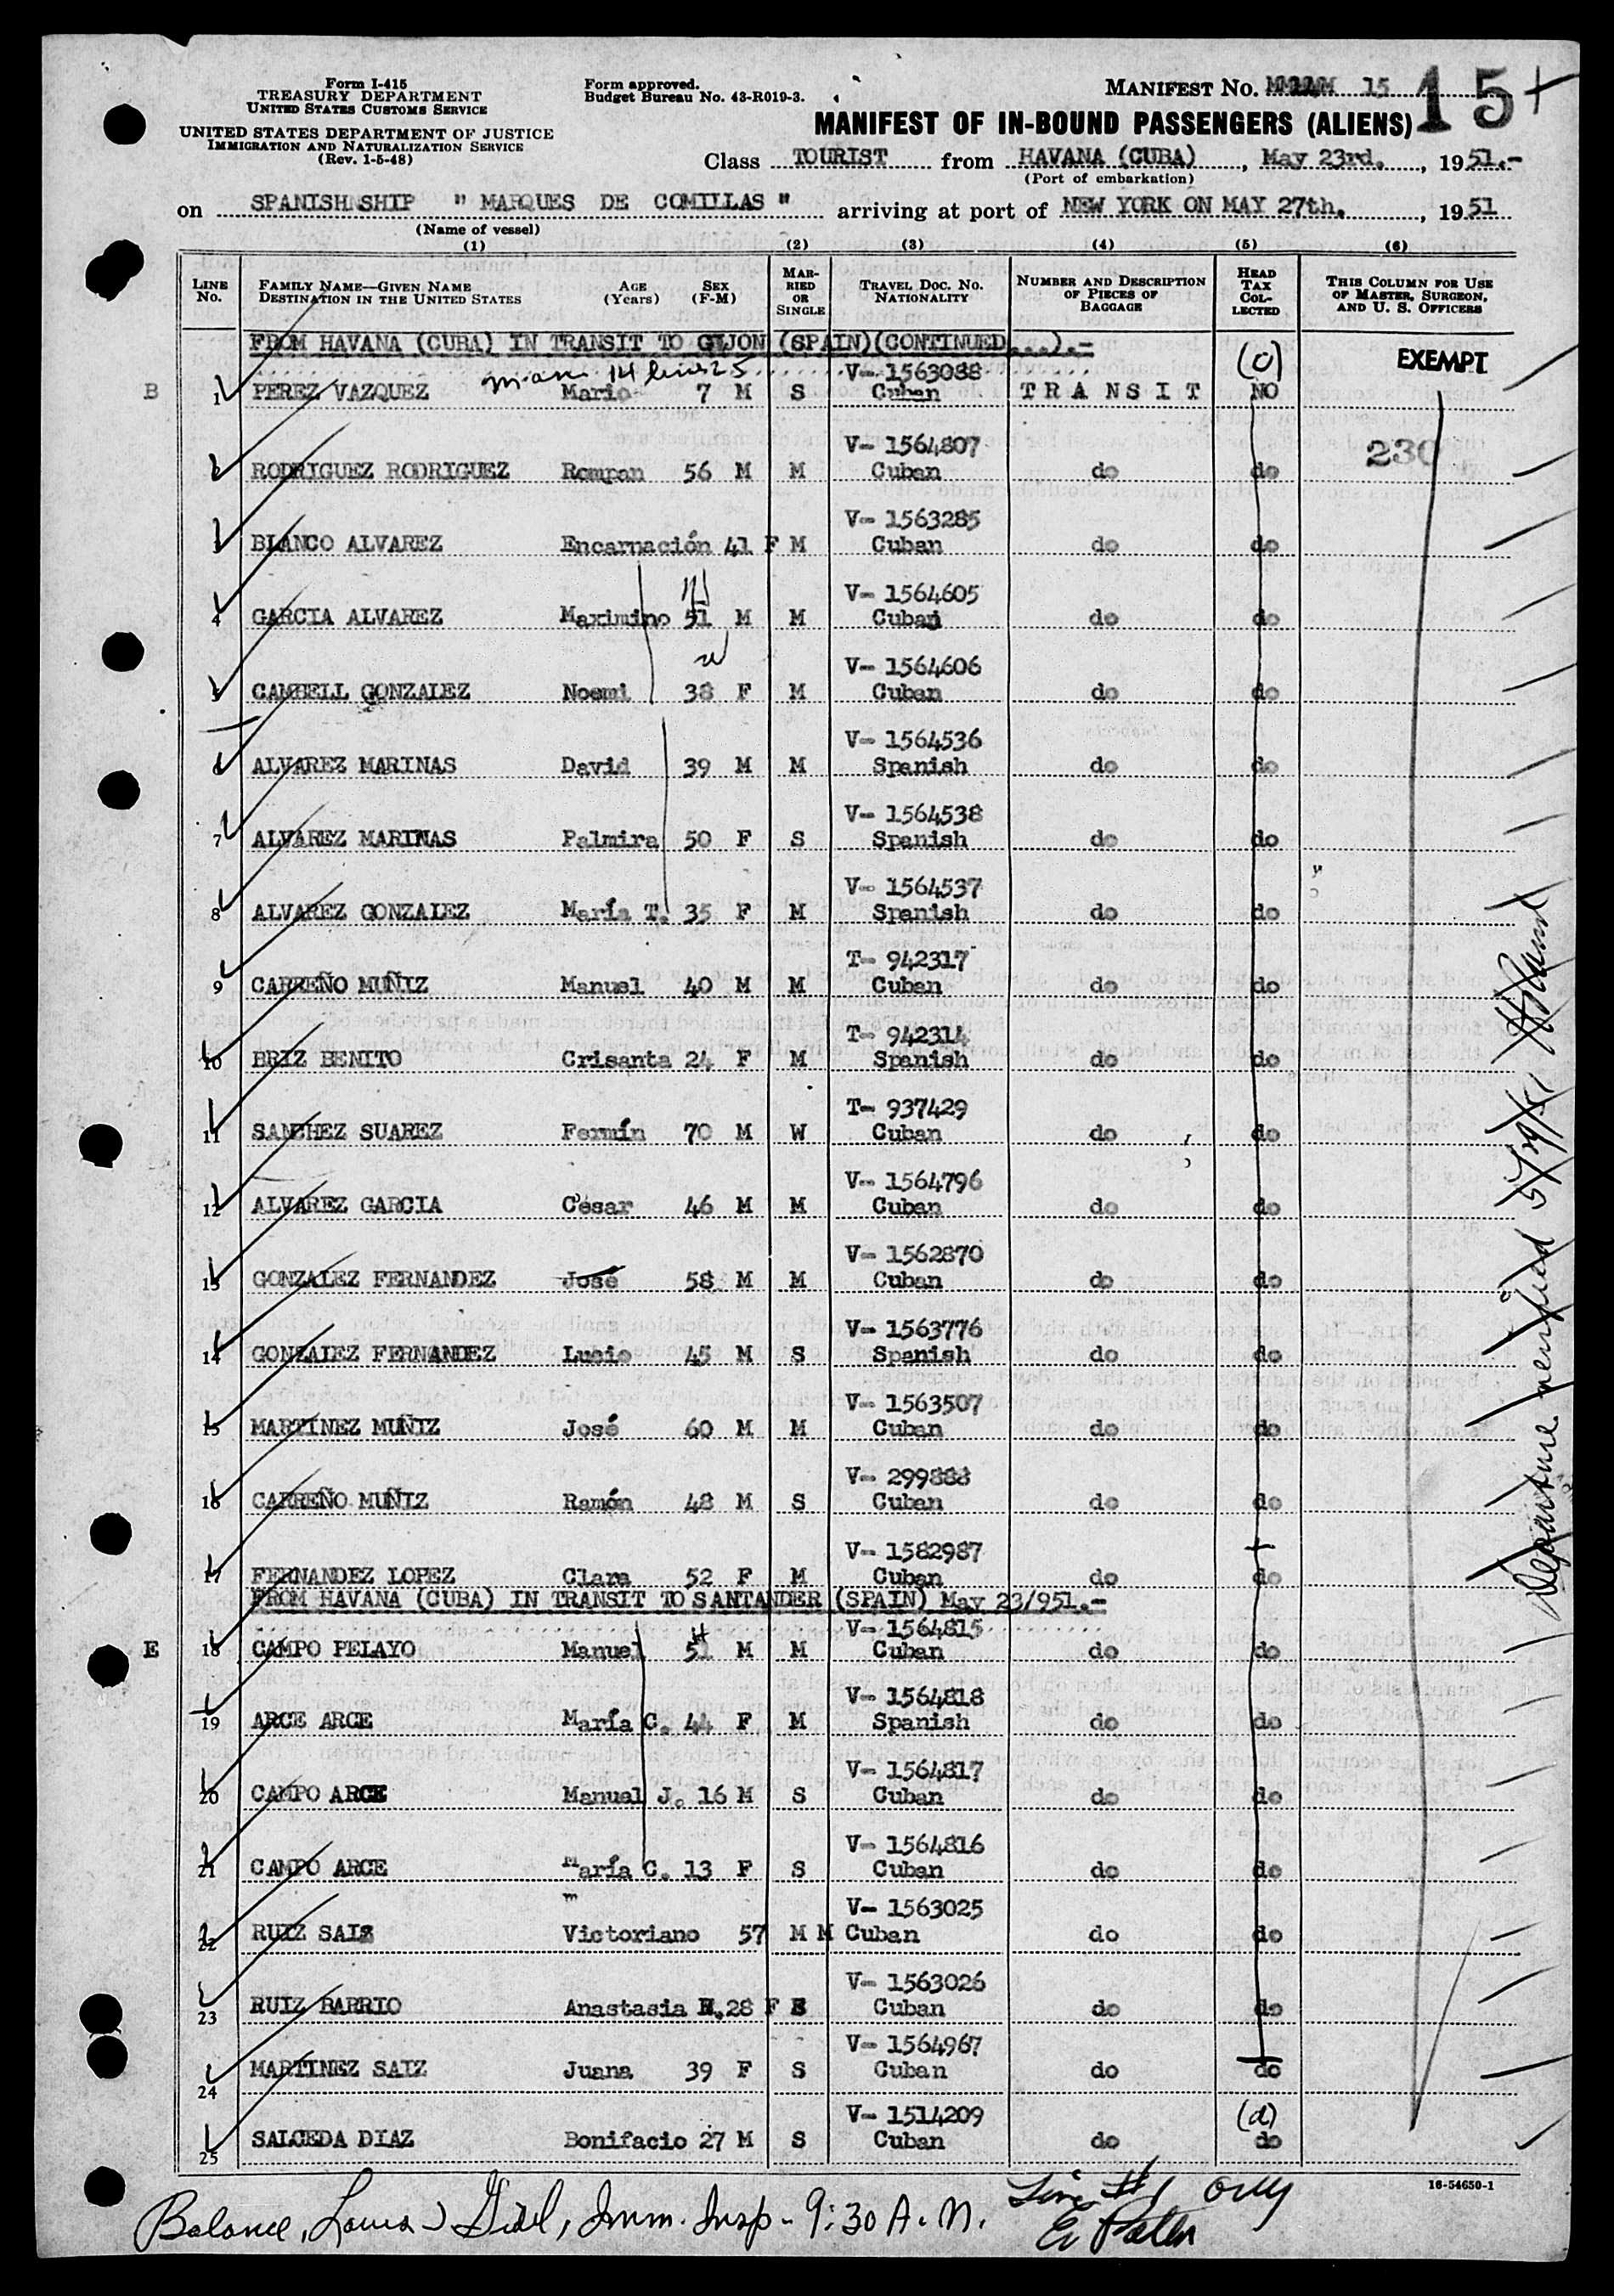 Form I-415
TREASURY DEPARTMENT
UNITED STATES CUSTOMS SERVICE
UNITED STATES DEPARTMENT OF JUSTICE
IMMIGRATION AND NATURALIZATION SERVICE
(Rev. 1-5-48)
Form approved.
Budget Bureau No. 43-R019-3.
MANIFEST No. 15
15+
MANIFEST OF IN-BOUND PASSENGERS (ALIENS)
Class TOURIST from HAVANA (CUBA), May 23rd., 1951.-
(Port of embarkation)
on SPANISH SHIP " MARQUES DE COMILLAS " arriving at port of NEW YORK ON MAY 27th., 1951
(Name of vessel)
(1) (2) (3) (4) (5) (6)
LINE No. FAMILY NAME—GIVEN NAME DESTINATION IN THE UNITED STATES AGE (Years) SEX (F-M) MARRIED OR SINGLE TRAVEL DOC. No. NATIONALITY NUMBER AND DESCRIPTION OF PIECES OF BAGGAGE HEAD TAX COLLECTED THIS COLUMN FOR USE OF MASTER, SURGEON, AND U. S. OFFICERS
FROM HAVANA (CUBA) IN TRANSIT TO GIJON (SPAIN)(CONTINUED...).-
(c) EXEMPT
V- 1563088
B 1 PEREZ VAZQUEZ Mario 7 M S Cuban T R A N S I T NO
V- 1564807
230
2 RODRIGUEZ RODRIGUEZ 56 M M Cuban do do
V- 1563285
3 BLANCO ALVAREZ Encarnación 41 F M Cuban do do
V- 1564605
4 GARCIA ALVAREZ Maximino 51 M M Cuban do do
V- 1564606
5 CAMBELL GONZALEZ Noemi 38 F M Cuban do do
V- 1564536
6 ALVAREZ MARINAS David 39 M M Spanish do do
V- 1564538
7 ALVAREZ MARINAS Palmira 50 F S Spanish do do
V- 1564537
8 ALVAREZ GONZALEZ María T. 35 F M Spanish do do
T- 942317
9 CARREÑO MUÑIZ Manuel 40 M M Cuban do do
T- 942314
10 BRIZ BENITO Crisanta 24 F M Spanish do do
T- 937429
11 SANCHEZ SUAREZ Fermín 70 M W Cuban do do
V- 1564796
12 ALVAREZ GARCIA César 46 M M Cuban do do
V- 1562870
13 GONZALEZ FERNANDEZ José 58 M M Cuban do do
V- 1563776
14 GONZALEZ FERNANDEZ Lucio 45 M S Spanish do do
V- 1563507
15 MARTINEZ MUÑIZ José 60 M M Cuban do do
V- 299888
16 CARREÑO MUÑIZ Ramón 48 M S Cuban do do
V- 1582987
17 FERNANDEZ LOPEZ Clara 52 F M Cuban do do
FROM HAVANA (CUBA) IN TRANSIT TO SANTANDER (SPAIN) May 23/951.-
V- 1564815
E 18 CAMPO PELAYO Manuel 51 M M Cuban do do
V- 1564818
19 ARCE ARCE María C. 44 F M Spanish do do
V- 1564817
20 CAMPO ARCE Manuel J. 16 M S Cuban do do
V- 1564816
21 CAMPO ARCE María C. 13 F S Cuban do do
V- 1563025
22 RUIZ SAIZ Victoriano 57 M M Cuban do do
V- 1563026
23 RUIZ BARRIO Anastasia 28 F S Cuban do do
V- 1564967
24 MARTINEZ SAIZ Juana 39 F S Cuban do do
V- 1514209 (d)
25 SALCEDA DIAZ Bonifacio 27 M S Cuban do do
16-54650-1
Departure verified 5/29/51
Line #1 only
Balance, Imm. Insp - 9:30 A.M.